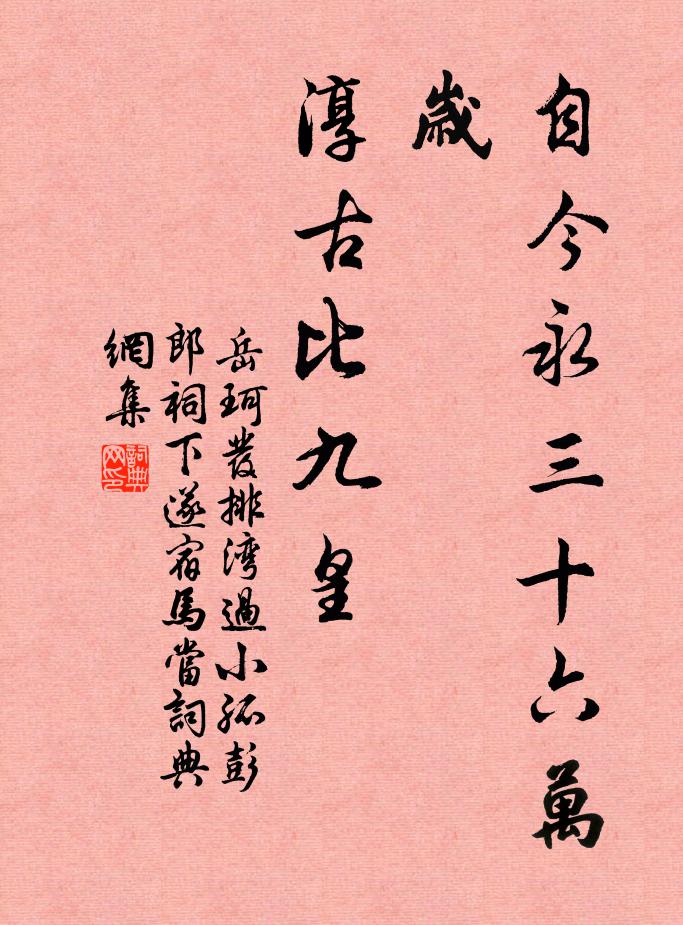 自今永三十六萬
歲
淳古比九皇
岳珂發排湾過小孤彭
郎祠下遂宿馬當詞典
網集
詞典
网印